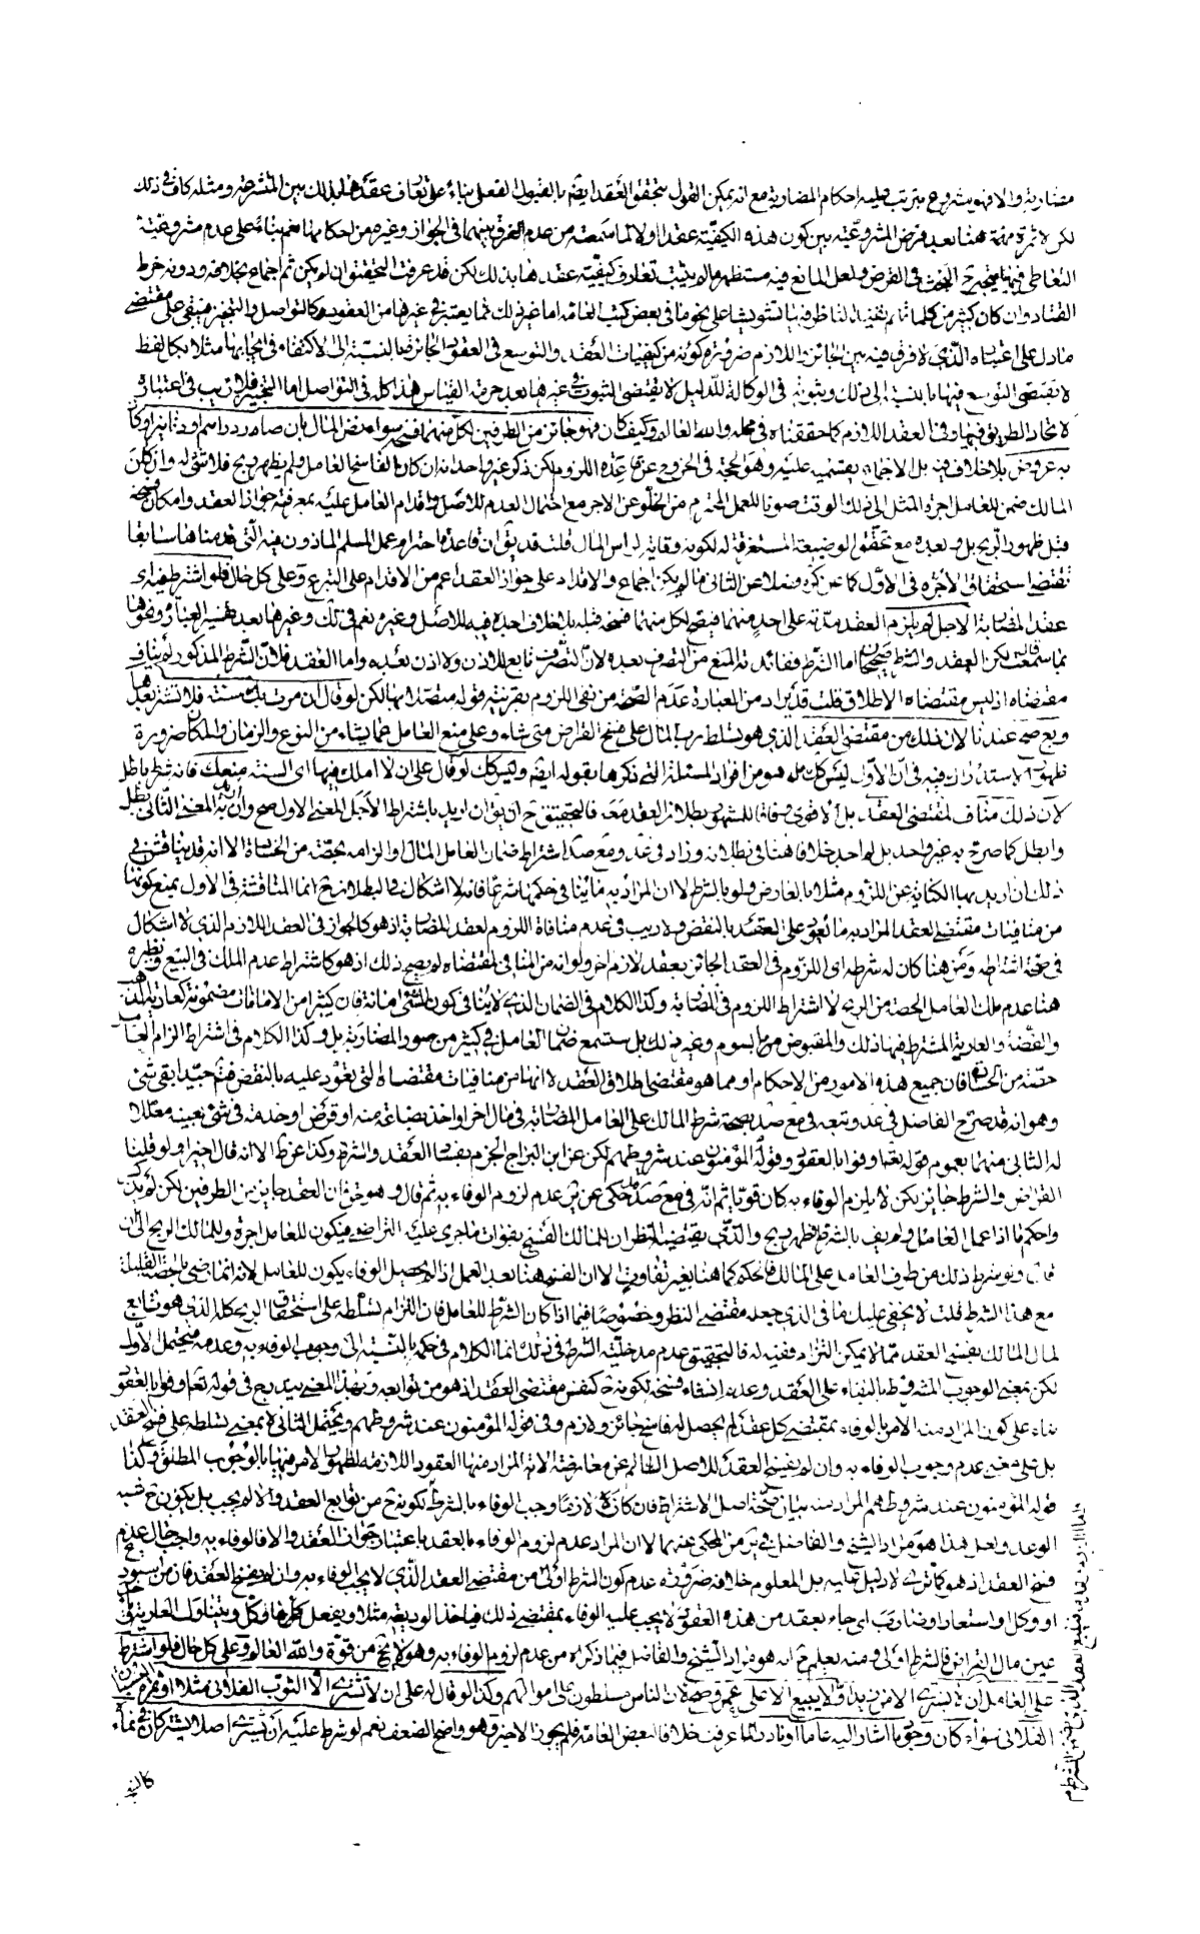 مضاربة والا فهو مشروع يترتب عليه احكام المضاربة مع انه يمكن القول بتحقق العقد ايضا بالقبول الفعلي بناء على تعارف عقد هذا بذلك بين المتشرعة ومثله كاف في ذلك
لكن لا ثمرة مهمة هنا بعد فرض المشروعية بين كون هذه الكيفية عقدا اولا لما سمعته من عدم الفرق بينهما في الجواز وغيره من احكامها نعم بناء على عدم مشروعية
التعاطي فيها يتجه البحث في الفرض ولعل المانع فيه مستظهر ما لم يثبت تعارف كيفية عقدها بذلك لكن قد عرفت التحقيق ان لم يكن ثم اجماع بخلافه ودونه خرط
القتاد وان كان كثير من كلماتهم يقتضيه الناظر فيها تشويشا على نحو ما في بعض كتب العامة اما غير ذلك مما يعتبر في غيرها من العقود كالتواصل والتنجيز مبني على مقتضى
ما دل على اعتباره الذي لا فرق فيه بين الجائز واللازم ضرورة كونه من كيفيات العقد والتوسع في العقود الجائزة بالنسبة الى الاكتفاء في ايجابها مثلا بكل لفظ
لا يقتضي التوسع فيها بالنسبة الى ذلك وثبوته في الوكالة للدليل لا يقتضي الثبوت في غيرها بعد حرمة القياس هذا كله في التواصل اما التنجيز فلا ريب في اعتباره
لاتحاد الطريق فيها وفي العقد اللازم كما حققناه في محله والله العالم وكيف كان فهو جائز من الطرفين لكل منهما فسخه سواء نض المال بان صار دراهم او دنانير او كان
به عروض بلا خلاف فيه بل الاجماع بقسميه عليه وهو الحجة في الخروج عن قاعدة اللزوم لكن ذكر غير واحد انه ان كان الفاسخ العامل ولم يظهر ربح فلا شيء له وان كان
المالك ضمن للعامل اجرة المثل الى ذلك الوقت صونا للعمل المحترم من الخلو عن الاجر مع احتمال العدم للاصل واقدام العامل عليه بمعرفة جواز العقد وامكان فسخه
قبل ظهور الربح بل وبعده مع تحقق الوضيعة المستغرقة له لكونه وقاية لراس المال قلت قد يق ان قاعدة احترام عمل المسلم الماذون فيه التي قدمناها سابقا
تقتضي استحقاق الاجرة في الاول كما عن كره فضلا عن الثاني ما لم يكن اجماع والاقدام على جواز العقد اعم من الاقدام على التبرع وعلى كل حال فلو اشترط فيه اي
عقد المضاربة الاجل لم يلزم العقد مدته على احد منهما فيصح لكل منهما فسخه قبله بلا خلاف اجده فيه للاصل وغيره نعم في لك وغيرها بعد هذه العبارة ونحوها
مما سمعت لكن العقد والشرط صحيحان اما الشرط ففائدته المنع من التصرف بعده لان التصرف تابع للاذن ولا اذن بعده واما العقد فلان الشرط المذكور لم يناف
مقتضاه اذ ليس مقتضاه الاطلاق قلت قد يراد من العبارة عدم الصحة من نفي اللزوم بقرينة قوله متصلا بها لكن لو قال ان مرت بك سنة فلا تشتر بعدها
وبع صح عندنا لان ذلك من مقتضى العقد الذي هو تسلط رب المال على فسخ القراض متى شاء وعلى منع العامل عما يشاء من النوع والزمان والمكان ضرورة
ظهور الاستدراك فيه في ان الاول ليس كك بل هو من افراد المسئلة التي ذكرها بقوله ايضا وليس كك لو قال على ان لا املك فيها اي السنة منعك فانه شرط باطل
لان ذلك مناف لمقتضى العقد بل الاقوى وفاقا للمشهور بطلان العقد معه فالتحقيق ح ان يق ان اريد باشتراط الاجل المعنى الاول صح وان اريد المعنى الثاني بطل
وابطل كما صرح به غير واحد بل لم اجد خلافا هنا في بطلانه وزاد في عد ومع صد اشتراط ضمان العامل المال او الزامه بحصة من الخسارة الا انه قد يناقش في
ذلك ان اريد بها الكناية عن اللزوم مثلا بالعارض ولو بالشرط لا ان المراد به ما ينافي حكمها شرعا فانه لا اشكال في البطلان ح انما المناقشة في الاول بمنع كونها
من منافيات مقتضى العقد المراد به ما يعود على العقد بالنقض ولا ريب في عدم منافاة اللزوم لعقد المضاربة اذ هو كالجواز في العقد اللازم الذي لا اشكال
في صحة اشتراطه ومن هنا كان له شرطه اي اللزوم في العقد الجائز بعقد لازم اخر ولو انه من المنافي لمقتضاه لم يصح ذلك اذ هو كاشتراط عدم الملك في البيع ونظيره
هنا عدم ملك العامل الحصة من الربح لا اشتراط اللزوم في المضاربة وكذا الكلام في الضمان الذي لا ينافي كون الشيء امانة فان كثيرا من الامانات مضمونة كعارية الذهب
والفضة والعارية المشترط فيها ذلك والمقبوض بالسوم وغير ذلك بل ستسمع ضمان العامل في كثير من صور المضاربة بل وكذا الكلام في اشتراط الزام العامل
حصة من الخسارة فان جميع هذه الامور من الاحكام او مما هو مقتضى اطلاق العقد لا انها من منافيات مقتضاه التي تعود عليه بالنقض فتدبر جيدا بقي شيء
وهو انه قد صرح الفاضل في عد وتبعه في مع صد بصحة شرط المالك على العامل المضاربة في مال اخر او اخذ بضاعة منه او قرض او خدمة في شيء بعينه معللا
له الثاني منهما بعموم قوله تعالى اوفوا بالعقود وقوله المؤمنون عند شروطهم لكن عن ابن البراج الجزم بفساد العقد والشرط وكذا عن ط الا انه قال اخيرا ولو قلنا
القراض والشرط جائز لكن لا يلزم الوفاء به كان قويا ثم انه في مع صد حكى عن ير عدم لزوم الوفاء به ثم قال وهو حق لان العقد جايز من الطرفين لكن لم يذكر
واحكم ما اذا عمل العامل ولم يف بالشرط فظهر ربح والذي يقتضيه النظر ان للمالك الفسخ بفوات ما جرى عليه التراضي فيكون للعامل اجرة وللمالك الربح الى ان
قال ولو شرط ذلك من طرف العامل على المالك فالحكم كما هنا بغير تفاوت الا ان الفسخ هنا بعد العمل اذا لم يحصل الوفاء يكون للعامل لانه انما رضي بالحصة القليلة
مع هذا الشرط قلت لا يخفى عليك ما في الذي جعله مقتضى النظر وخصوصا فيما اذا كان الشرط للعامل فان التزام تسلطه على استحقاق الربح كله الذي هو تابع
لمال المالك بفسخ العقد مما لا يمكن التزامه ففيه له فالتحقيق عدم مدخلية الشرط في ذلك انما الكلام في حكمه بالنسبة الى وجوب الوفاء به وعدمه فيحتمل الاول
لكن بمعنى الوجوب المشروط بالبقاء على العقد وعدم انشاء فسخه لكونه ح كنفس مقتضى العقد اذ هو من توابعه وبهذا المعنى يندرج في قوله تعالى اوفوا بالعقود
بناء على كون المراد منه الامر بالوفاء بمقتضى كل عقد لم يحصل له فاسخ جائز ولازم وفي قوله المؤمنون عند شروطهم ويحتمل الثاني لا بمعنى تسلطه على فسخ العقد
بل على معنى عدم وجوب الوفاء به وان لم يفسخ العقد للاصل السالم عن معارضة الاية المراد منها العقود اللازمة لظهور الامر فيها بالوجوب المطلق وكذا
قوله المؤمنون عند شروطهم المراد منه بيان صحة اصل الاشتراط فان كان في لازم وجب الوفاء بالشرط لكونه ح من توابع العقد والا لم يجب بل يكون ح شبه
الوعد ولعل هذا هو مراد الشيخ والفاضل في ير من المحكي عنهما لا ان المراد عدم لزوم الوفاء بالعقد باعتبار جواز العقد والا فالوفاء به واجب حال عدم
فسخ العقد اذ هو كما ترى لا دليل عليه بل المعلوم خلافه ضرورة عدم كون الشرط اولى من مقتضى العقد الذي لا يجب الوفاء به وان لم يفسخ العقد فان من استودع
او وكل او استعار او ضارب اي جاء بعقد من هذه العقود لا يجب عليه الوفاء بمقتضى ذلك فياخذ الوديعة مثلا او يفعل ما وكل ويتناول العارية
عين مال القراض فالشرط اولى ومنه يعلم ح انه هو مراد الشيخ والفاضل فيما ذكراه من عدم لزوم الوفاء به وهو لا يخ من قوة والله العالم وعلى كل حال فلو اشترط
على العامل ان لا يشتري الا من زيد او لا يبيع الا على عمرو صح لان الناس مسلطون على اموالهم وكذا لو قال له على ان لا تشتري الا الثوب الفلاني مثلا او ثمرة البستان
الفلاني سواء كان وجود ما اشار اليه عاما او نادرا لما عرفت خلافا لبعض العامة فلم يجوز الاخير وهو واضح الضعف نعم لو شرط عليه ان يشتري اصلا يشتركان في نمائه
كالشجر